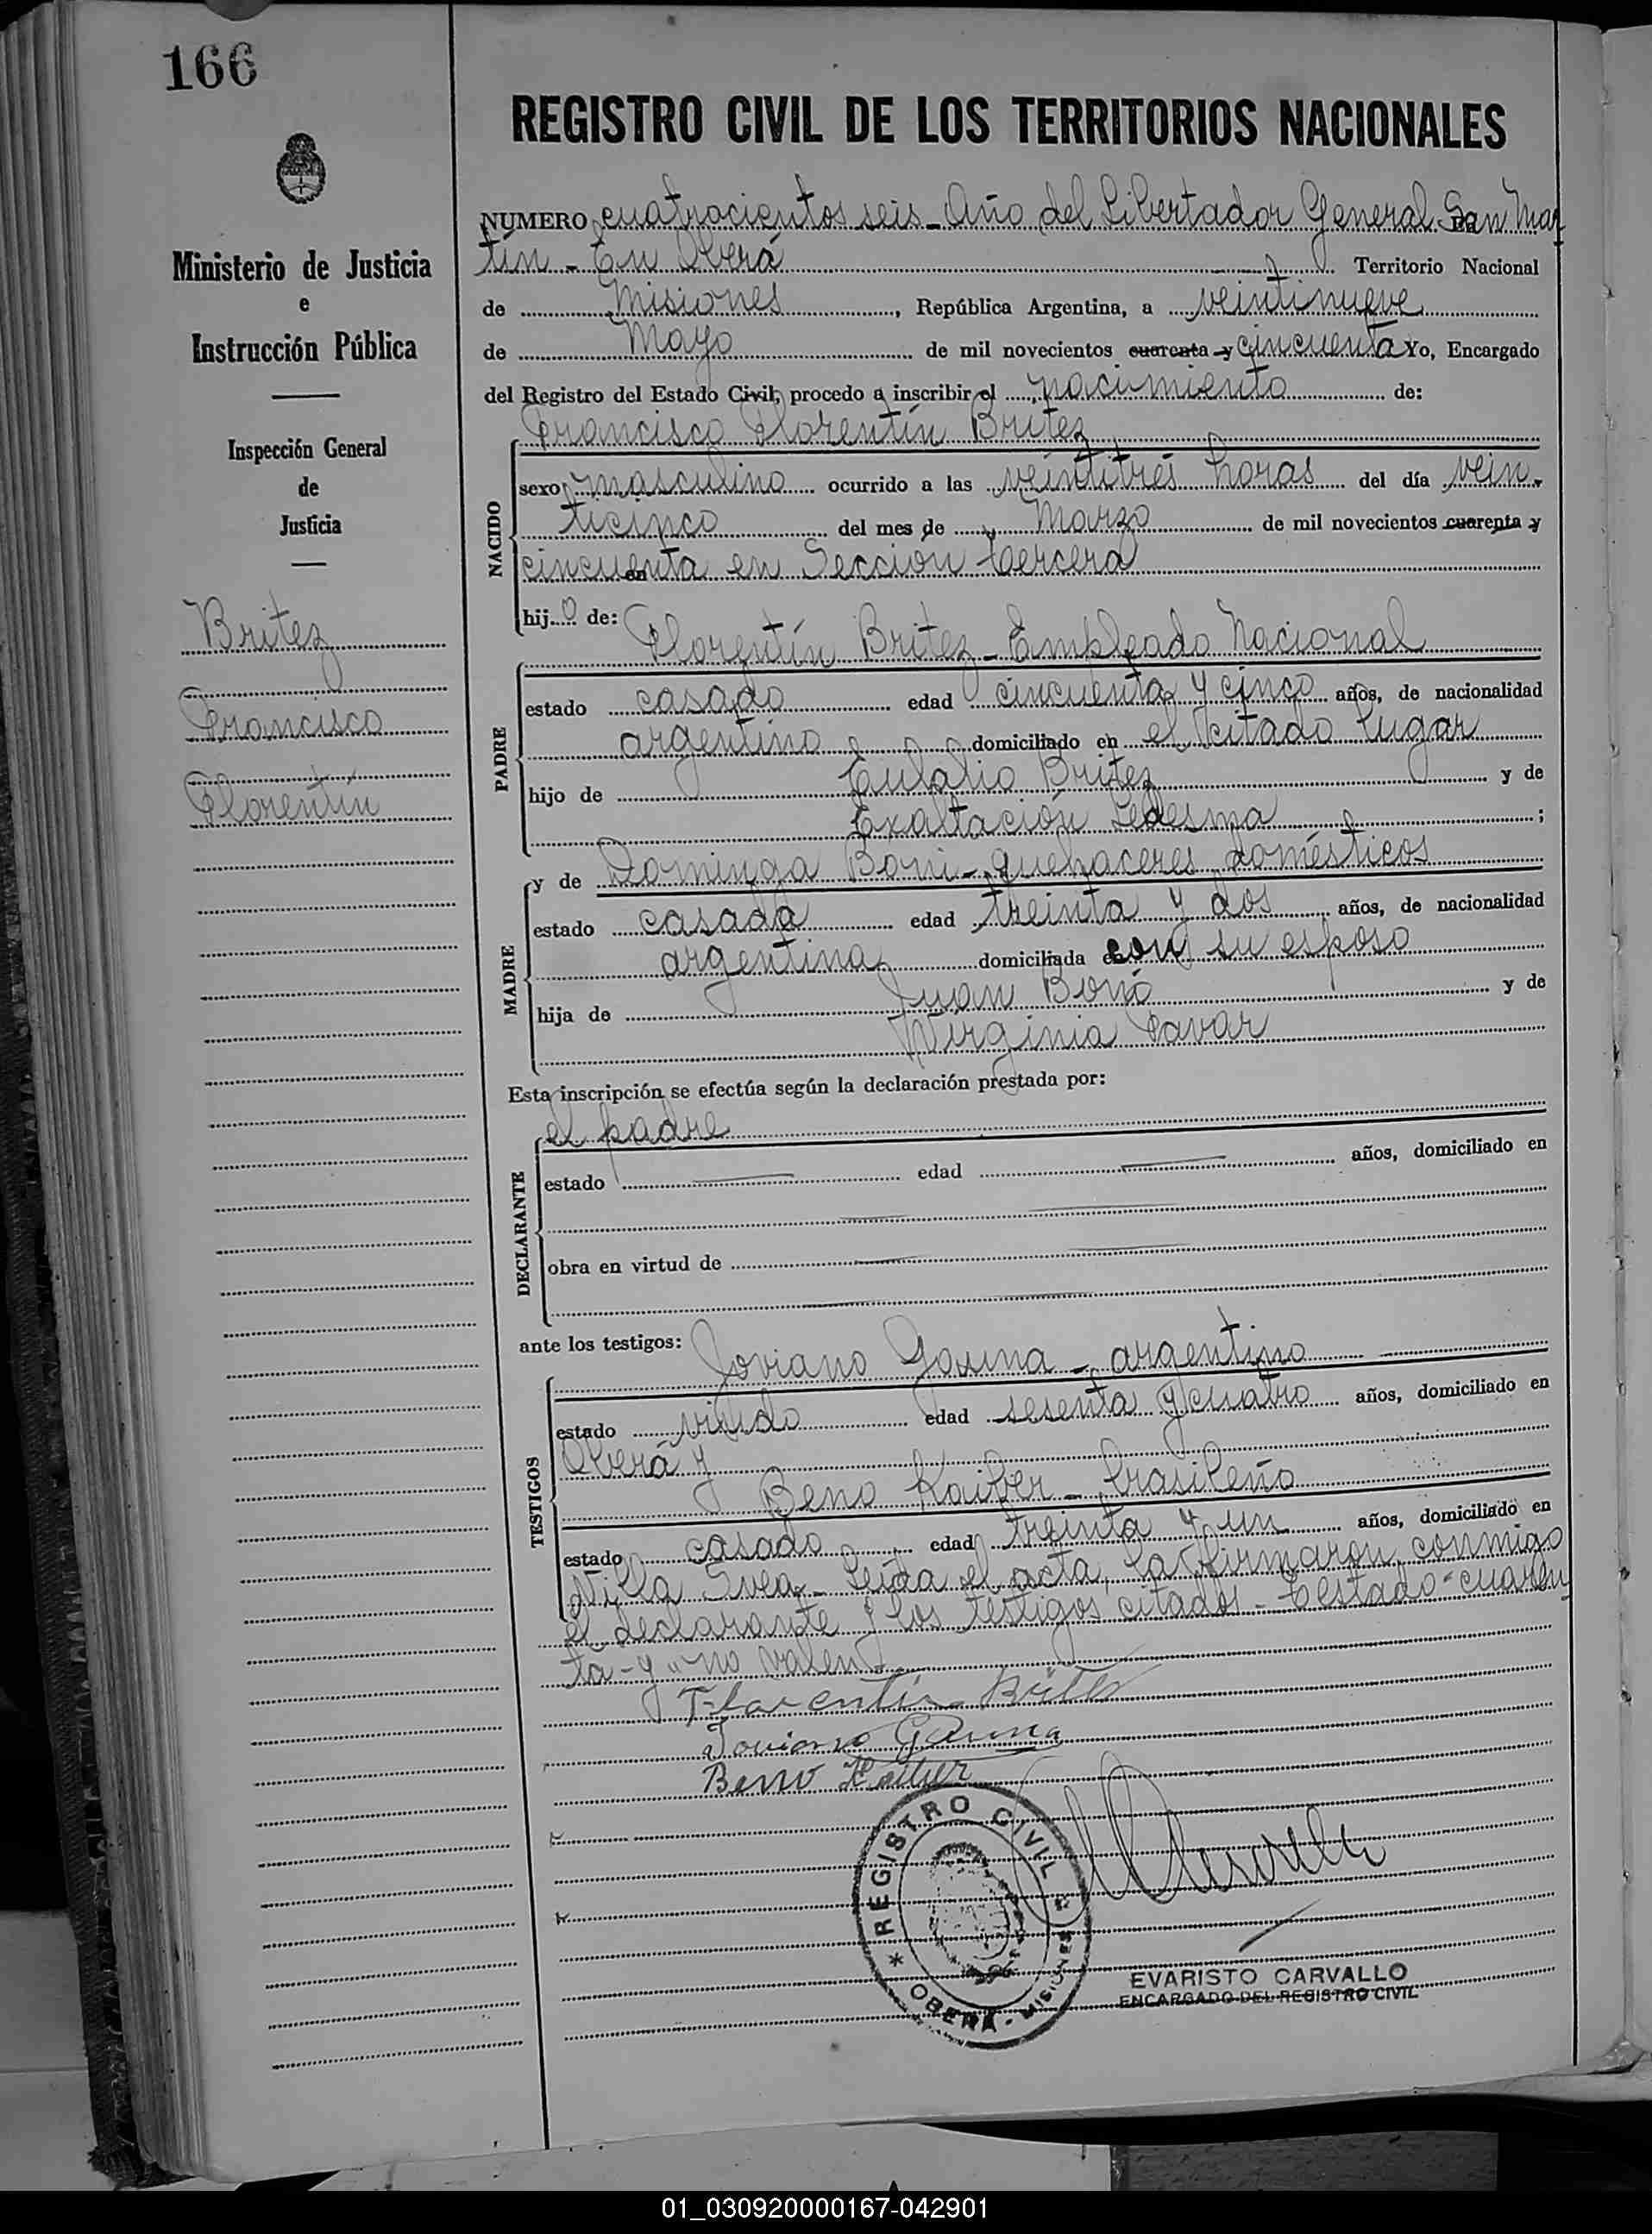 166
REGISTRO CIVIL DE LOS TERRITORIOS NACIONALES
Ministerio de Justicia
e
Instrucción Pública
Inspección General
de
Justicia
Britez
Francisco
Florentín
NUMERO cuatrocientos seis - Año del Libertador General San Mar
tín - En Oberá Territorio Nacional
de Misiones, República Argentina, a veintinueve
de Mayo de mil novecientos cuarenta y cincuenta Yo, Encargado
del Registro del Estado Civil, procedo a inscribir el nacimiento de:
Francisco Florentín Britez
NACIDO
sexo masculino ocurrido a las veintitrés horas del día vein-
ticinco del mes de Marzo de mil novecientos cuarenta y
cincuenta en Sección tercera
hijo de:
Florentín Britez - Empleado Nacional
PADRE
estado casado edad cincuenta y cinco años, de nacionalidad
argentino domiciliado en el citado lugar
hijo de Eulalio Britez y de
Exaltación Ledesma ;
y de Dominga Boni - quehaceres domésticos
MADRE
estado casada edad treinta y dos años, de nacionalidad
argentina domiciliada con su esposo
hija de Juan Bonó y de
Virginia Pavar
Esta inscripción se efectúa según la declaración prestada por:
el padre
DECLARANTE
estado edad años, domiciliado en
obra en virtud de
ante los testigos:
Joviano Gauna - argentino
TESTIGOS
estado viudo edad sesenta y cuatro años, domiciliado en
Oberá y
Beno Kaiber - brasileño
estado casado edad treinta y un años, domiciliado en
Villa Svea - Leída el acta, la firmaron conmigo
el declarante y los testigos citados - Testado "cuaren
ta - y" no valen
Florentín Britez
Joviano Gauna
Beno
REGISTRO CIVIL
OBERÁ - MISIONES
EVARISTO CARVALLO
ENCARGADO DEL REGISTRO CIVIL
01_030920000167-042901